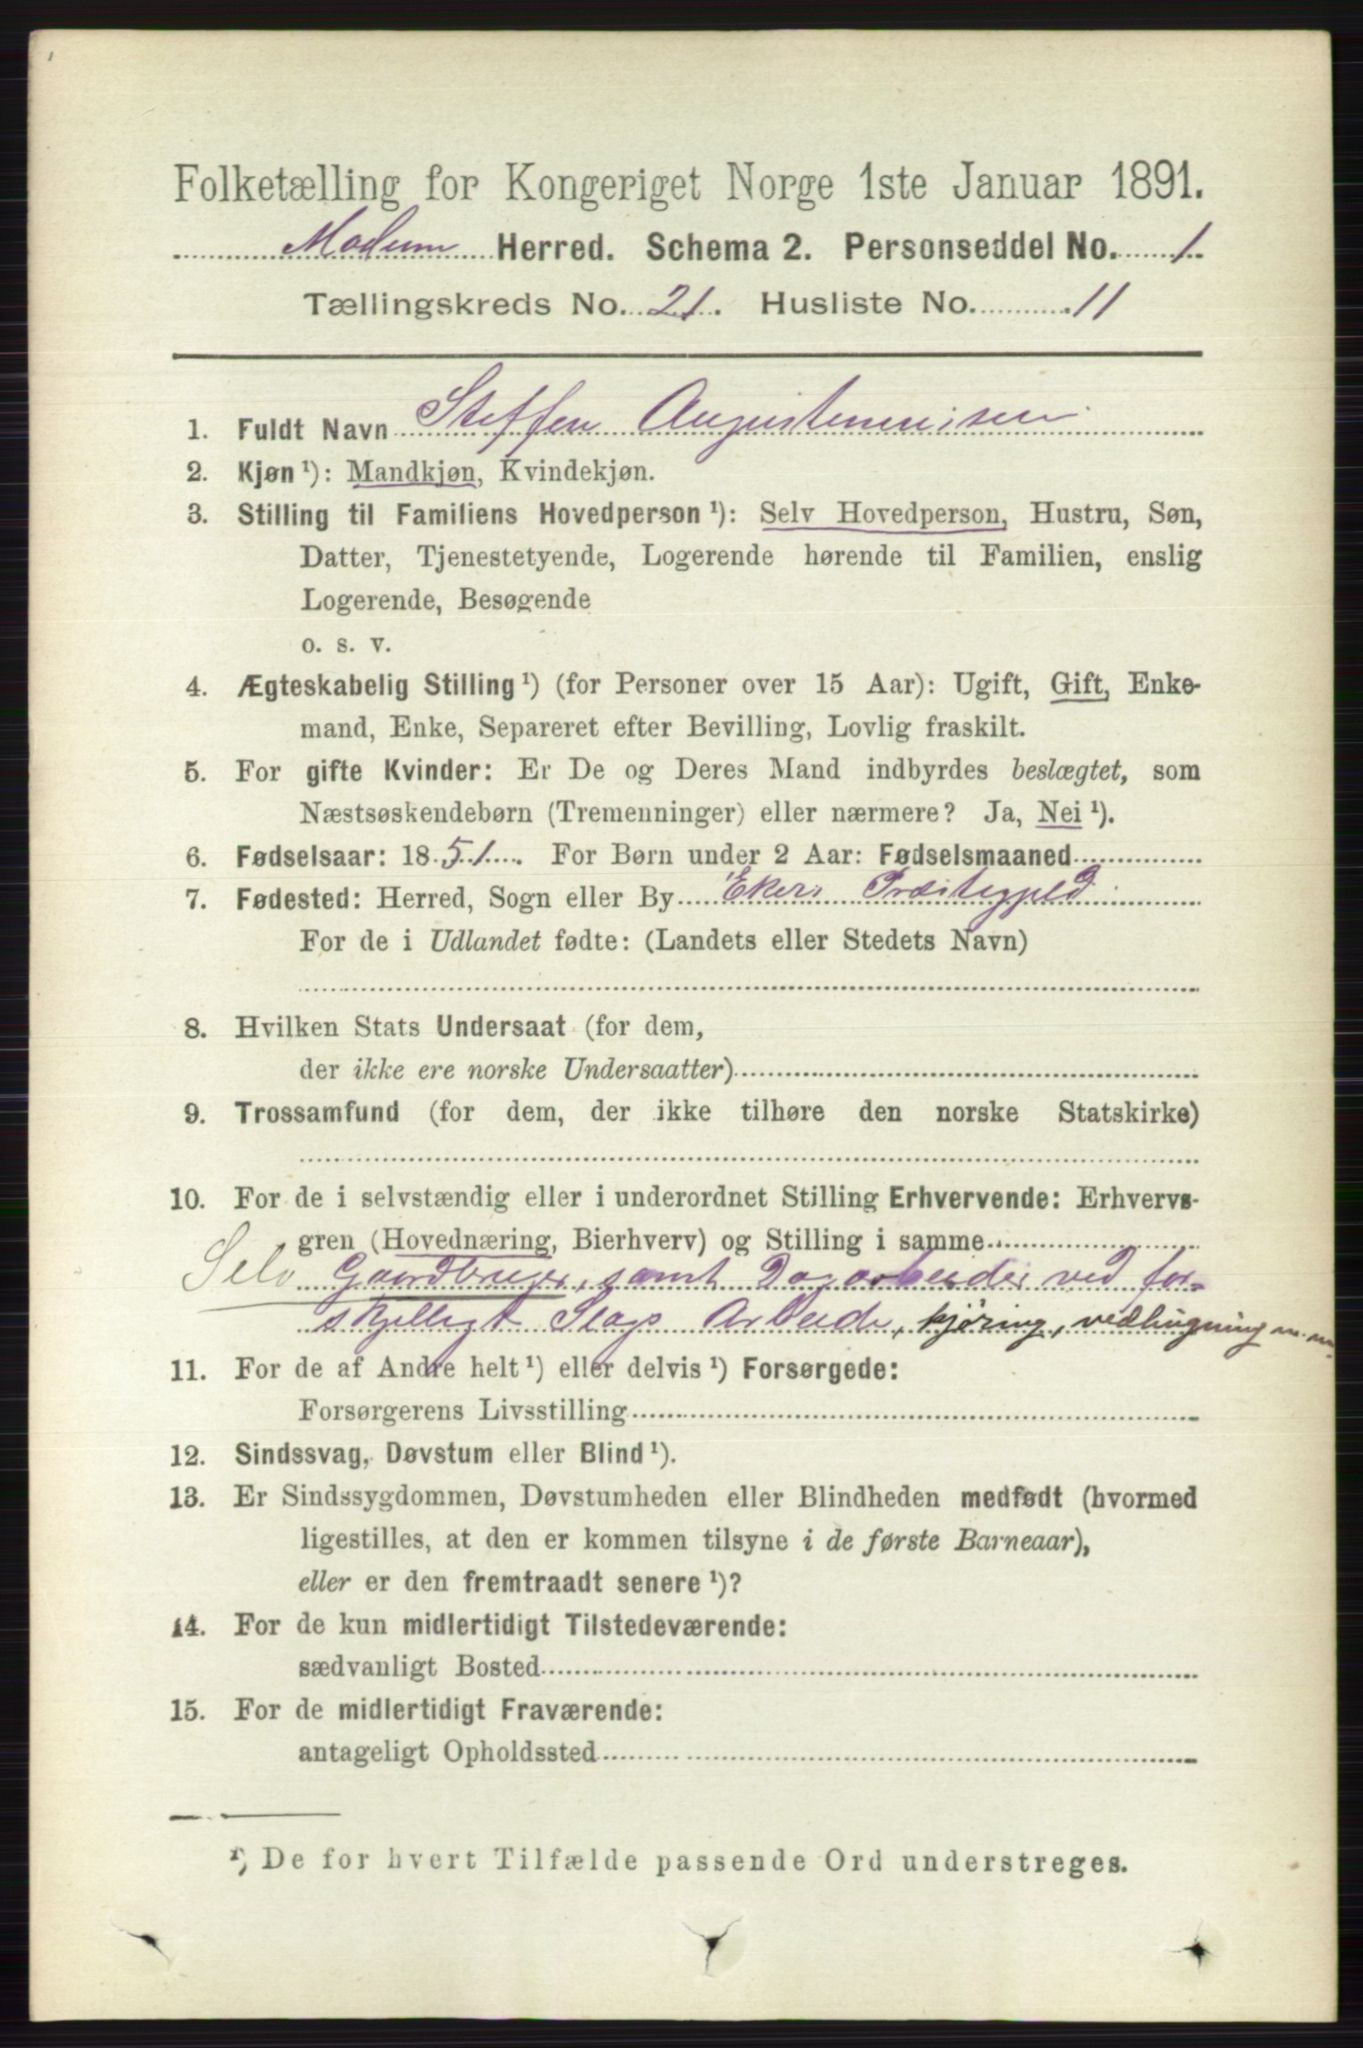 Folketælling for Kongeriget Norge 1ste Januar 1891.
Modum Herred. Schema 2. Personseddel No. 1
Tællingskreds No. 21. Husliste No. 11
1. Fuldt Navn Steffen Augustinussen
2. Kjøn ¹): Mandkjøn, Kvindekjøn.
3. Stilling til Familiens Hovedperson ¹): Selv Hovedperson, Hustru, Søn,
Datter, Tjenestetyende, Logerende hørende til Familien, enslig
Logerende, Besøgende
o. s. v.
4. Ægteskabelig Stilling ¹) (for Personer over 15 Aar): Ugift, Gift, Enke-
mand, Enke, Separeret efter Bevilling, Lovlig fraskilt.
5. For gifte Kvinder: Er De og Deres Mand indbyrdes beslægtet, som
Næstsøskendebørn (Tremenninger) eller nærmere? Ja, Nei ¹).
6. Fødselsaar: 1851. For Børn under 2 Aar: Fødselsmaaned
7. Fødested: Herred, Sogn eller By Ekers Præstegjeld
For de i Udlandet fødte: (Landets eller Stedets Navn)
8. Hvilken Stats Undersaat (for dem,
der ikke ere norske Undersaatter)
9. Trossamfund (for dem, der ikke tilhøre den norske Statskirke)
10. For de i selvstændig eller i underordnet Stilling Erhvervende: Erhvervs-
gren (Hovednæring, Bierhverv) og Stilling i samme
Selv Gaardbruger, samt Dagarbeider ved for-
skjelligt Slags Arbeide, kjøring, vedhugning m. m.
11. For de af Andre helt ¹) eller delvis ¹) Forsørgede:
Forsørgerens Livsstilling
12. Sindssvag, Døvstum eller Blind ¹).
13. Er Sindssygdommen, Døvstumheden eller Blindheden medfødt (hvormed
ligestilles, at den er kommen tilsyne i de første Barneaar),
eller er den fremtraadt senere ¹)?
14. For de kun midlertidigt Tilstedeværende:
sædvanligt Bosted
15. For de midlertidigt Fraværende:
antageligt Opholdssted
¹) De for hvert Tilfælde passende Ord understreges.